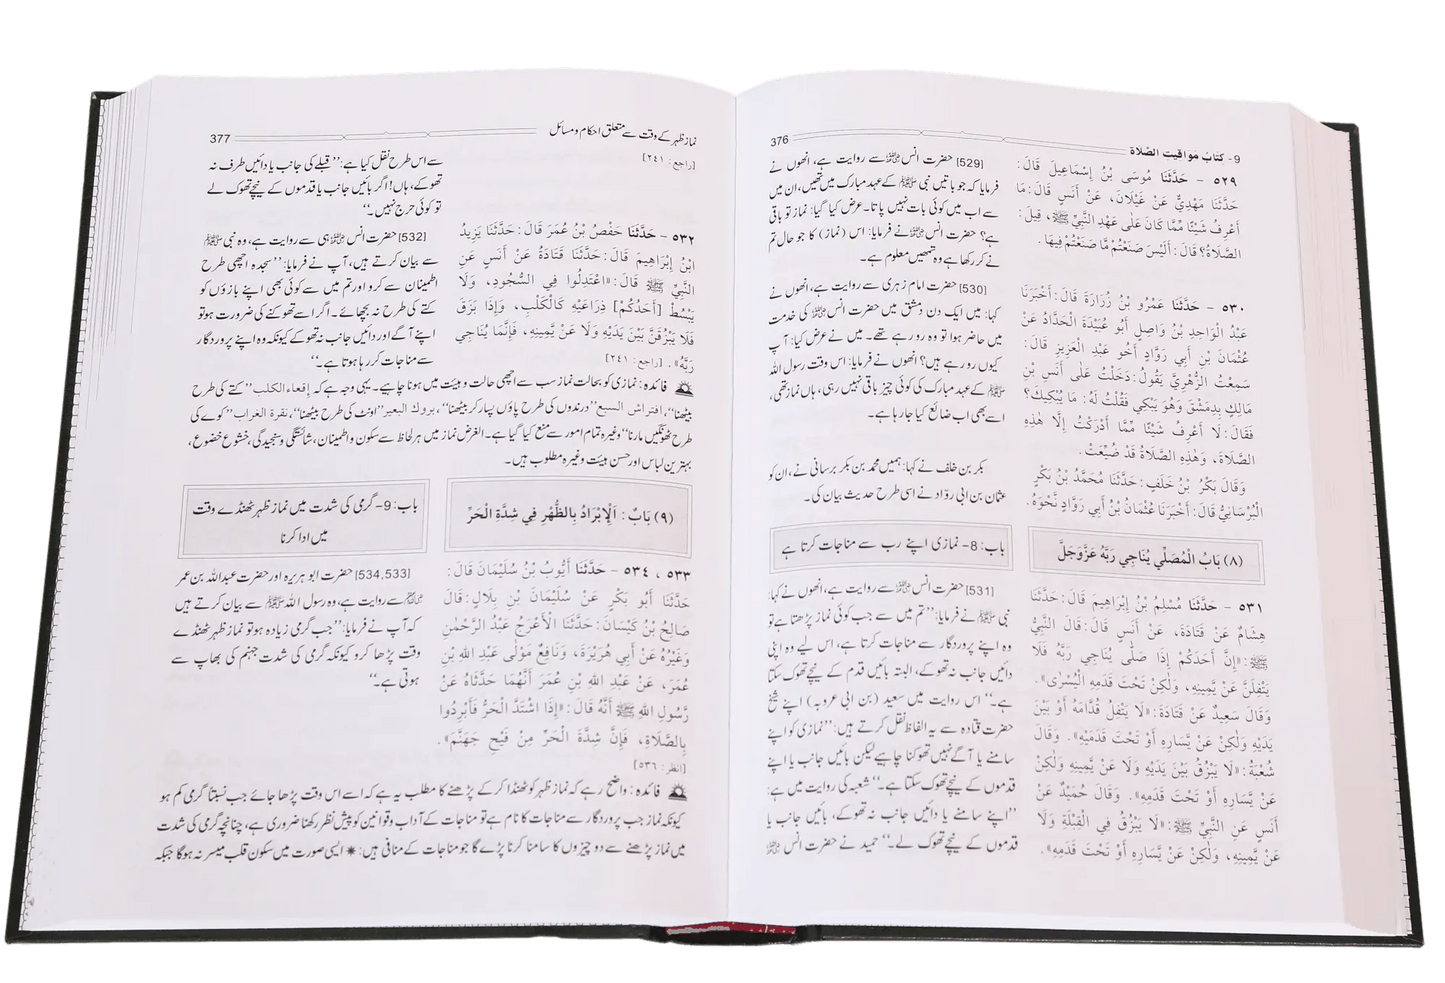 9- كتابُ مَوَاقيتِ الصَّلاةِ
376
٥٢٩ - حَدَّثَنَا مُوسَى بْنُ إِسْمَاعِيلَ قَالَ:
حَدَّثَنَا مَهْدِيٌّ عَنْ غَيْلَانَ، عَنْ أَنَسٍ قَالَ: مَا
أَعْرِفُ شَيْئًا مِّمَّا كَانَ عَلَى عَهْدِ النَّبِيِّ ﷺ، قِيلَ:
الصَّلَاةُ؟ قَالَ: أَلَيْسَ صَنَعْتُمْ مَّا صَنَعْتُمْ فِيهَا.
٥٣٠ - حَدَّثَنَا عَمْرُو بْنُ زُرَارَةَ قَالَ: أَخْبَرَنَا
عَبْدُ الْوَاحِدِ بْنُ وَاصِلٍ أَبُو عُبَيْدَةَ الْحَدَّادُ عَنْ
عُثْمَانَ بْنِ أَبِي رَوَّادٍ أَخُو عَبْدِ الْعَزِيزِ قَالَ:
سَمِعْتُ الزُّهْرِيَّ يَقُولُ: دَخَلْتُ عَلَى أَنَسِ بْنِ
مَالِكٍ بِدِمَشْقَ وَهُوَ يَبْكِي فَقُلْتُ لَهُ: مَا يُبْكِيكَ؟
فَقَالَ: لَا أَعْرِفُ شَيْئًا مِّمَّا أَدْرَكْتُ إِلَّا هٰذِهِ
الصَّلَاةَ، وَهٰذِهِ الصَّلَاةُ قَدْ ضُيِّعَتْ.
وَقَالَ بَكْرُ بْنُ خَلَفٍ: حَدَّثَنَا مُحَمَّدُ بْنُ بَكْرٍ
الْبُرْسَانِيُّ قَالَ: أَخْبَرَنَا عُثْمَانُ بْنُ أَبِي رَوَّادٍ نَّحْوَهُ.
(٨) بَابُ الْمُصَلِّي يُنَاجِي رَبَّهُ عَزَّوَجَلَّ
٥٣١ - حَدَّثَنَا مُسْلِمُ بْنُ إِبْرَاهِيمَ قَالَ: حَدَّثَنَا
هِشَامٌ عَنْ قَتَادَةَ، عَنْ أَنَسٍ قَالَ: قَالَ النَّبِيُّ
ﷺ: «إِنَّ أَحَدَكُمْ إِذَا صَلَّى يُنَاجِي رَبَّهُ فَلَا
يَتْفِلَنَّ عَنْ يَّمِينِهِ، وَلٰكِنْ تَحْتَ قَدَمِهِ الْيُسْرَى».
وَقَالَ سَعِيدٌ عَنْ قَتَادَةَ: «لَا يَتْفِلُ قُدَّامَهُ أَوْ بَيْنَ
يَدَيْهِ وَلٰكِنْ عَنْ يَّسَارِهِ أَوْ تَحْتَ قَدَمَيْهِ». وَقَالَ
شُعْبَةُ: «لَا يَبْزُقُ بَيْنَ يَدَيْهِ وَلَا عَنْ يَّمِينِهِ وَلٰكِنْ
عَنْ يَّسَارِهِ أَوْ تَحْتَ قَدَمِهِ». وَقَالَ حُمَيْدٌ عَنْ
أَنَسٍ عَنِ النَّبِيِّ ﷺ: «لَا يَبْزُقْ فِي الْقِبْلَةِ وَلَا
عَنْ يَّمِينِهِ، وَلٰكِنْ عَنْ يَّسَارِهِ أَوْ تَحْتَ قَدَمِهِ».
[529] حضرت انس ؓ سے روایت ہے، انھوں نے
فرمایا کہ جو باتیں نبی ﷺ کے عہد مبارک میں تھیں، ان میں
سے اب میں کوئی بات نہیں پاتا۔ عرض کیا گیا: نماز تو باقی
ہے؟ حضرت انس ؓ نے فرمایا: اس (نماز) کا جو حال تم
نے کر رکھا ہے وہ تمھیں معلوم ہے۔
[530] حضرت امام زہری سے روایت ہے، انھوں نے
کہا: میں ایک دن دمشق میں حضرت انس ؓ کی خدمت
میں حاضر ہوا تو وہ رو رہے تھے۔ میں نے عرض کیا: آپ
کیوں رو رہے ہیں؟ انھوں نے فرمایا: اس وقت رسول اللہ
ﷺ کے عہد مبارک کی کوئی چیز باقی نہیں رہی، ہاں نماز تھی،
اسے بھی اب ضائع کیا جا رہا ہے۔
بکر بن خلف نے کہا: ہمیں محمد بن بکر برسانی نے، ان کو
عثمان بن ابی رواد نے اسی طرح حدیث بیان کی۔
باب: 8- نمازی اپنے رب سے مناجات کرتا ہے
[531] حضرت انس ؓ سے روایت ہے، انھوں نے کہا:
نبی ﷺ نے فرمایا: ”تم میں سے جب کوئی نماز پڑھتا ہے تو
وہ اپنے پروردگار سے مناجات کرتا ہے، اس لیے وہ اپنی
دائیں جانب نہ تھوکے، البتہ بائیں قدم کے نیچے تھوک سکتا
ہے۔“ اس روایت میں سعید (بن ابی عروبہ) اپنے شیخ
حضرت قتادہ سے یہ الفاظ نقل کرتے ہیں: ”نمازی کو اپنے
سامنے یا آگے نہیں تھوکنا چاہیے لیکن بائیں جانب یا اپنے
قدموں کے نیچے تھوک سکتا ہے۔“ شعبہ کی روایت میں ہے:
”اپنے سامنے یا دائیں جانب نہ تھوکے، بائیں جانب یا
قدموں کے نیچے تھوک لے۔“ حمید نے حضرت انس ؓ
نماز ظہر کے وقت سے متعلق احکام و مسائل
377
[راجع: ٢٤١]
سے اس طرح نقل کیا ہے: ”قبلے کی جانب یا دائیں طرف نہ
تھوکے، ہاں! اگر بائیں جانب یا قدموں کے نیچے تھوک لے
تو کوئی حرج نہیں۔“
٥٣٢ - حَدَّثَنَا حَفْصُ بْنُ عُمَرَ قَالَ: حَدَّثَنَا يَزِيدُ
ابْنُ إِبْرَاهِيمَ قَالَ: حَدَّثَنَا قَتَادَةُ عَنْ أَنَسٍ عَنِ
النَّبِيِّ ﷺ قَالَ: «اعْتَدِلُوا فِي السُّجُودِ، وَلَا
يَبْسُطْ [أَحَدُكُمْ] ذِرَاعَيْهِ كَالْكَلْبِ، وَإِذَا بَزَقَ
فَلَا يَبْزُقَنَّ بَيْنَ يَدَيْهِ وَلَا عَنْ يَّمِينِهِ، فَإِنَّمَا يُنَاجِي
رَبَّهُ». [راجع: ٢٤١]
[532] حضرت انس ؓ ہی سے روایت ہے، وہ نبی ﷺ
سے بیان کرتے ہیں، آپ نے فرمایا: ”سجدہ اچھی طرح
اطمینان سے کرو اور تم میں سے کوئی بھی اپنے بازوؤں کو
کتے کی طرح نہ بچھائے۔ اگر اسے تھوکنے کی ضرورت ہو تو
اپنے آگے اور دائیں جانب نہ تھوکے کیونکہ وہ اپنے پروردگار
سے مناجات کر رہا ہوتا ہے۔“
فائدہ: نمازی کو بحالت نماز سب سے اچھی حالت و ہیئت میں ہونا چاہیے۔ یہی وجہ ہے کہ إقعاء الكلب ”کتے کی طرح
بیٹھنا“، افتراش السبع ”درندوں کی طرح پاؤں پسار کر بیٹھنا“، بروك البعير ”اونٹ کی طرح بیٹھنا“، نقرة الغراب ”کوے کی
طرح ٹھونگیں مارنا“ وغیرہ تمام امور سے منع کیا گیا ہے۔ الغرض نماز میں ہر لحاظ سے سکون و اطمینان، شائستگی و سنجیدگی، خشوع خضوع،
بہترین لباس اور حسن ہیئت وغیرہ مطلوب ہیں۔
(٩) بَابٌ: اَلْإِبْرَادُ بِالظُّهْرِ فِي شِدَّةِ الْحَرِّ
باب: 9- گرمی کی شدت میں نماز ظہر ٹھنڈے وقت
میں ادا کرنا
٥٣٣، ٥٣٤ - حَدَّثَنَا أَيُّوبُ بْنُ سُلَيْمَانَ قَالَ:
حَدَّثَنَا أَبُو بَكْرٍ عَنْ سُلَيْمَانَ بْنِ بِلَالٍ: قَالَ
صَالِحُ بْنُ كَيْسَانَ: حَدَّثَنَا الْأَعْرَجُ عَبْدُ الرَّحْمٰنِ
وَغَيْرُهُ عَنْ أَبِي هُرَيْرَةَ، وَنَافِعٌ مَوْلَى عَبْدِ اللهِ بْنِ
عُمَرَ، عَنْ عَبْدِ اللهِ بْنِ عُمَرَ أَنَّهُمَا حَدَّثَاهُ عَنْ
رَّسُولِ اللهِ ﷺ أَنَّهُ قَالَ: «إِذَا اشْتَدَّ الْحَرُّ فَأَبْرِدُوا
بِالصَّلَاةِ، فَإِنَّ شِدَّةَ الْحَرِّ مِنْ فَيْحِ جَهَنَّمَ».
[انظر: ٥٣٦]
[534,533] حضرت ابو ہریرہ اور حضرت عبداللہ بن عمر
ؓ سے روایت ہے، وہ رسول اللہ ﷺ سے بیان کرتے ہیں
کہ آپ نے فرمایا: ”جب گرمی زیادہ ہو تو نماز ظہر ٹھنڈے
وقت پڑھا کرو کیونکہ گرمی کی شدت جہنم کی بھاپ سے
ہوتی ہے۔“
فائدہ: واضح رہے کہ نماز ظہر کو ٹھنڈا کر کے پڑھنے کا مطلب یہ ہے کہ اسے اس وقت پڑھا جائے جب نسبتاً گرمی کم ہو
کیونکہ نماز جب پروردگار سے مناجات کا نام ہے تو مناجات کے آداب و قوانین کو پیش نظر رکھنا ضروری ہے، چنانچہ گرمی کی شدت
میں نماز پڑھنے سے دو چیزوں کا سامنا کرنا پڑے گا جو مناجات کے منافی ہیں: ✷ ایسی صورت میں سکون قلب میسر نہ ہوگا جبکہ